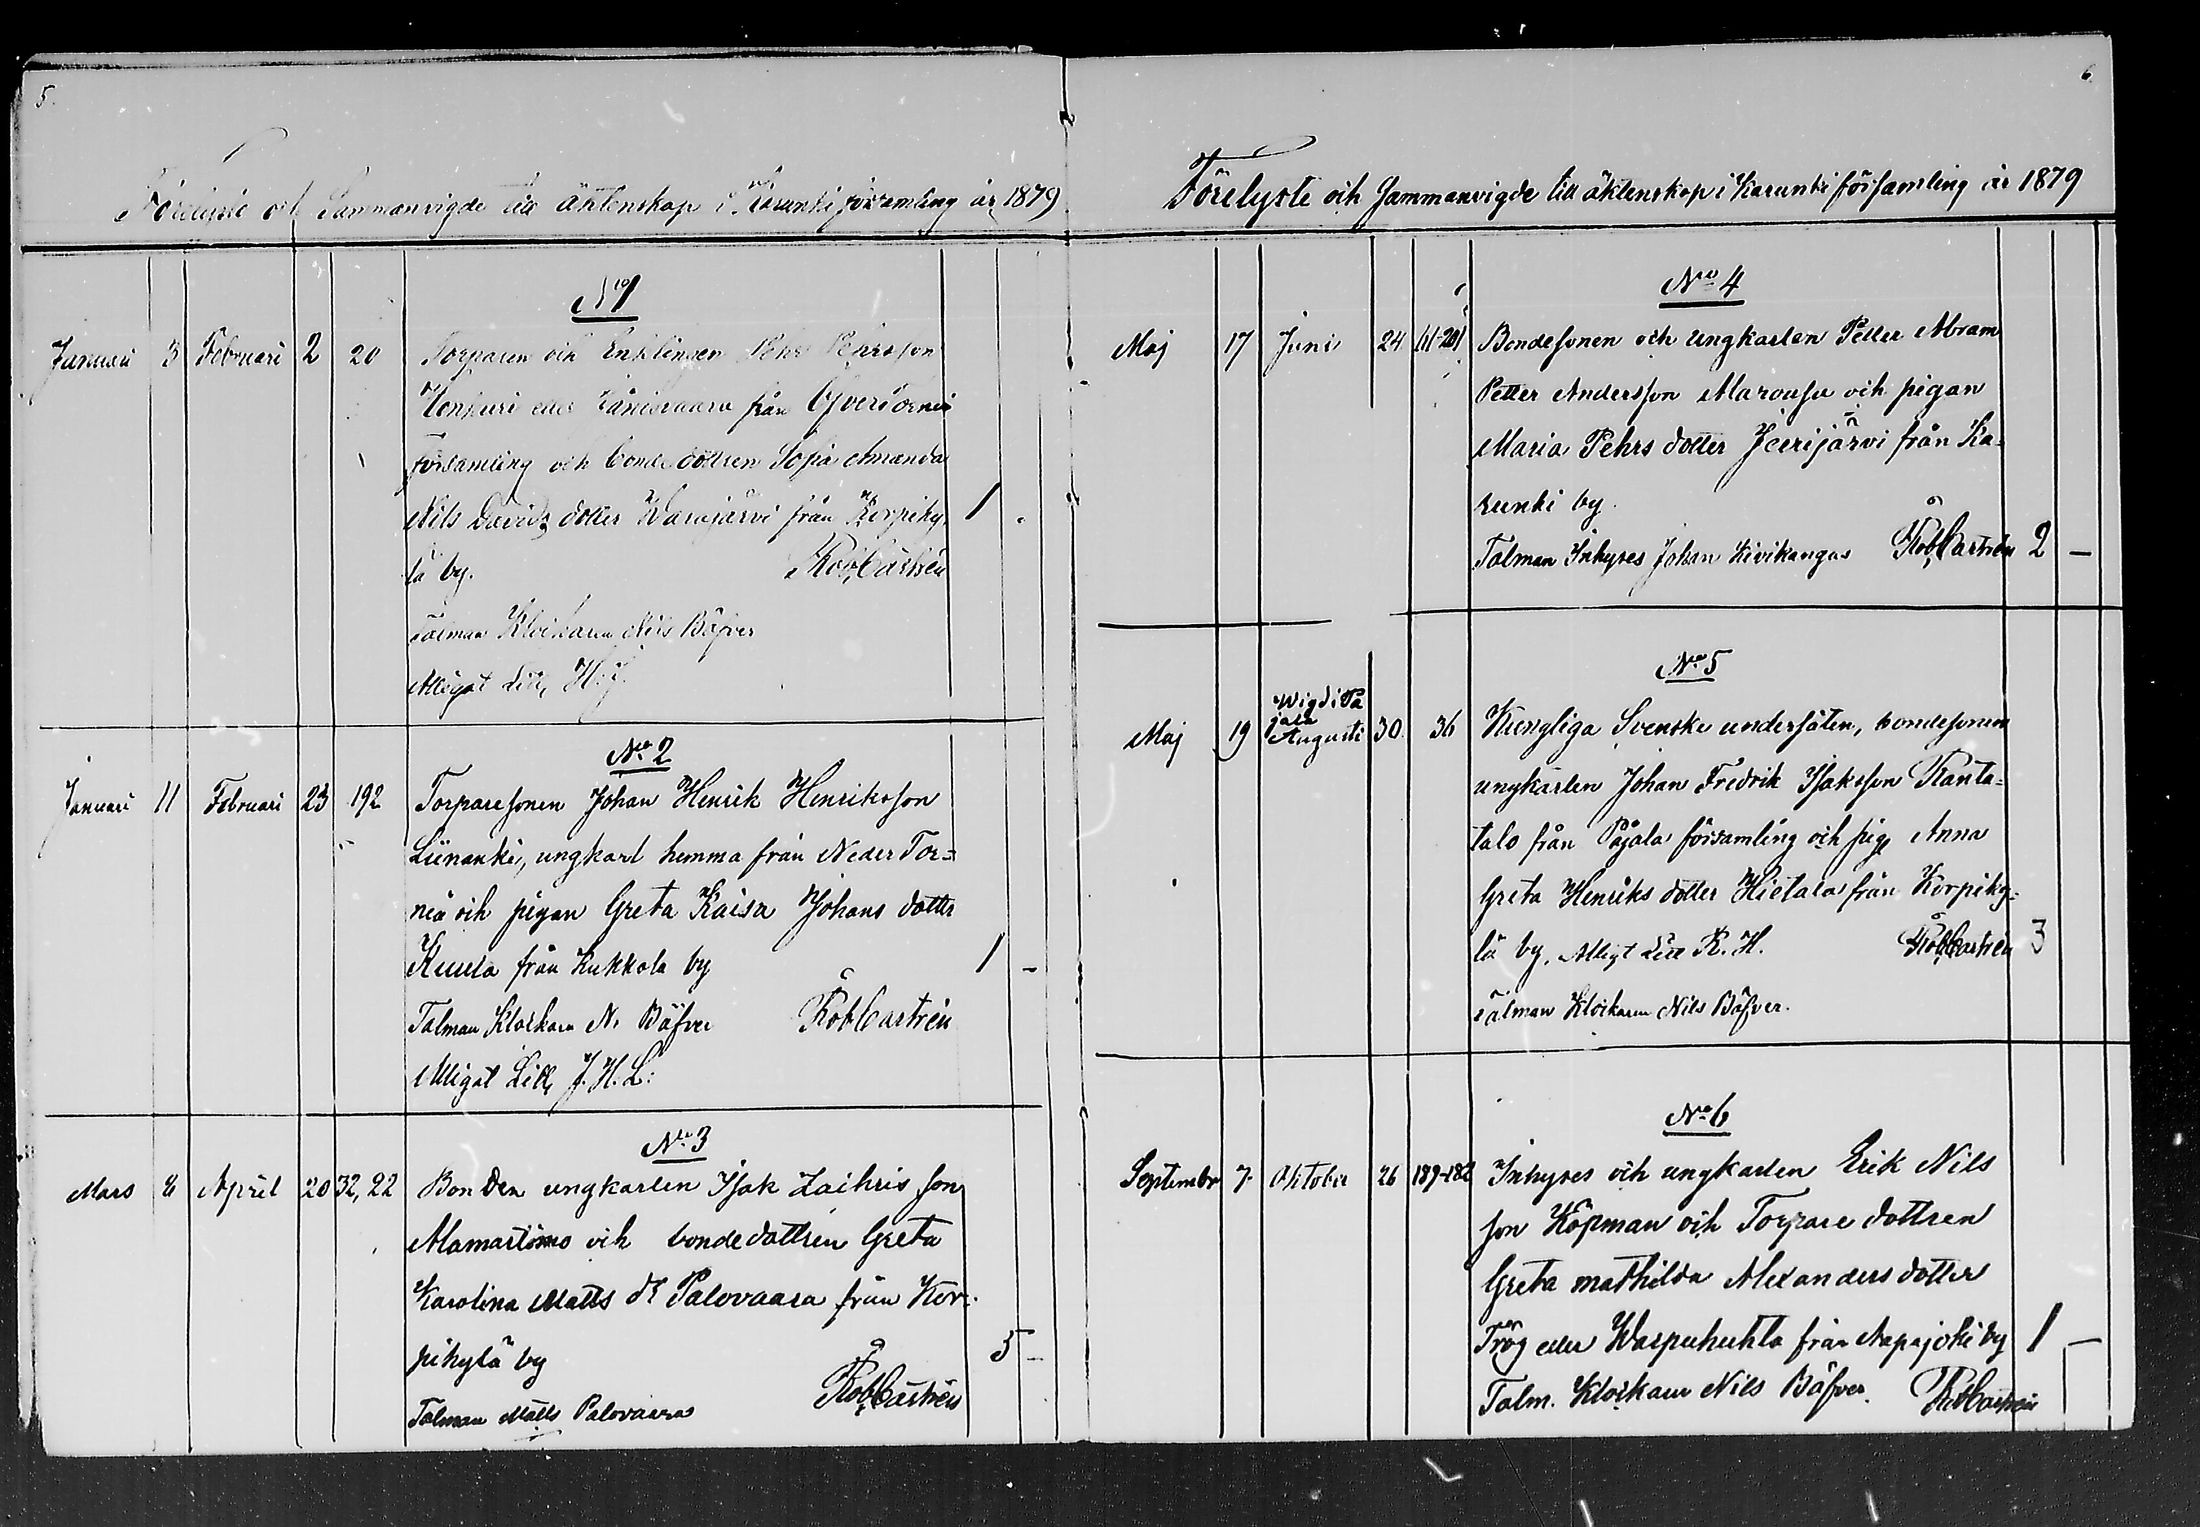 5.
Förelyste och Sammanvigde till äktenskap i Karunki församling år 1879
No 1
Januari 3 Februari 2 20 Torparen och Enklingen Pehr Pehrsson
från Öfvertorneå
Församling och bonde dottren Sofia Amanda
Nils Davids dotter Warajärvi från Korpiky-
lä by. Rob Castrén 1
Talman Klockaren Nils Bäfver
Alligat Litt,
No 2
Januari 11 Februari 23 192 Torparesonen Johan Henrik Henriksson
Liinanki, ungkarl hemma från Neder Tor=
neå och pigan Greta Kaisa Johans dotter
Kuula från Kukkola by 1 -
Talman Klockarn N. Bäfver Rob Castrén
Alligat Litt, J. H. L:
No 3
Mars 8 April 20 32, 22 Bonden ungkarlen Isak Zachris son
Mamartömo och bondedottren Greta
Karolina Matts dr Palovaara från Kor-
pikylä by 5 -
Talman Matts Palovaara Rob Castrén
6.
Förelyste och Sammanvigde till äktenskap i Karunki församling år 1879
No 4
Maj 17 Juni 24 Bondesonen och ungkarlen Petter Abram
Petter Andersson Marousu och pigan
Maria Pehrs dotter Jeerijärvi från Ka-
runki by.
Talman Inhyses Johan Kivikangas Rob Castrén 2 -
No 5
Wigd i Pa
jala
Maj 19 Augusti 30. 36 Kungliga Svenske undersåten, bondesonen
ungkarlen Johan Fredrik Isaksson Ranta=
talo från Pajala församling och pig Anna
Greta Henriks dotter Hietala från Korpiky=
lä by. Alligt Litt R. H. Rob Castrén 3
Talman Klockaren Nils Bäfver.
No 6
September 7. Oktober 26 189-182 Inhyses och ungkarlen Erik Nils
son Köpman och Torpare dottren
Greta mathilda Alexanders dotter
Trög eller Waspuhuhta från Aapajoki by 1 -
Talm. Klockarn Nils Bäfver. Rob Castrén